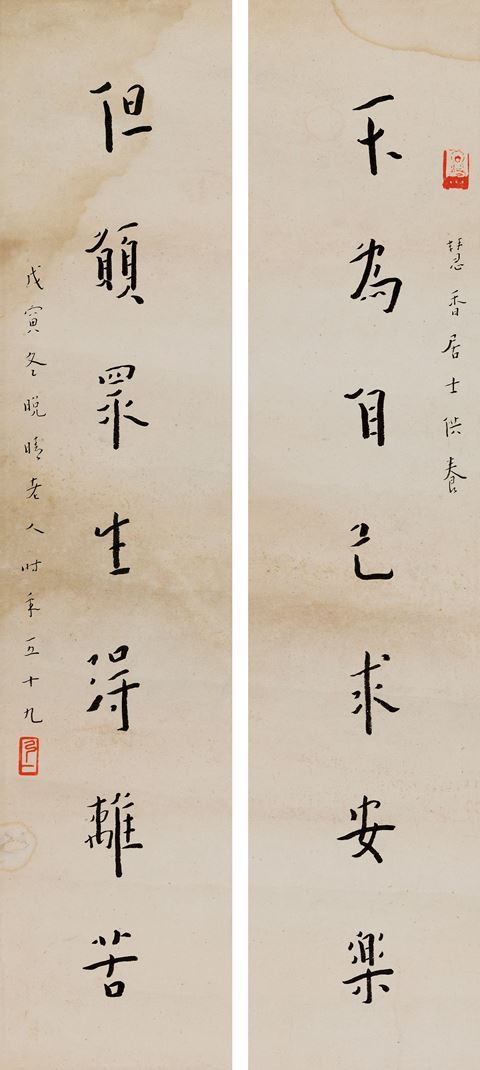 慧香居士供養
不為自己求安樂
但願眾生得離苦
戊寅冬晚晴老人时年五十九